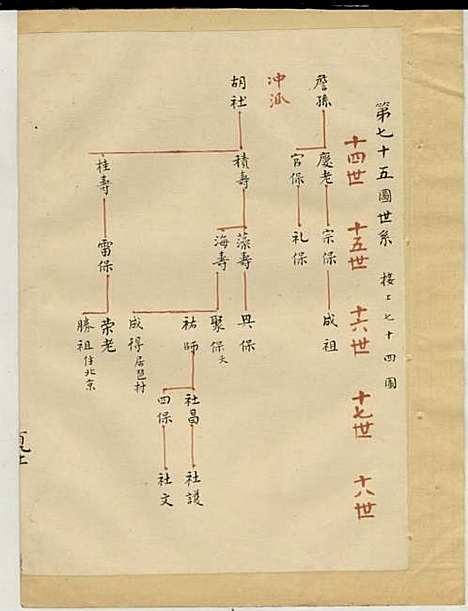 第七十五圖世系 接上七十四圖
十四世 十五世 十六世 十七世 十八世
詹孫
慶老 宗保 成祖
官保 礼保
冲派
胡社
積壽
蕅壽 具保
海壽
聚保欠
祐師
社昌 社護
四保 社文
成得居邑村
桂壽 雷保
荣老
勝祖住北京